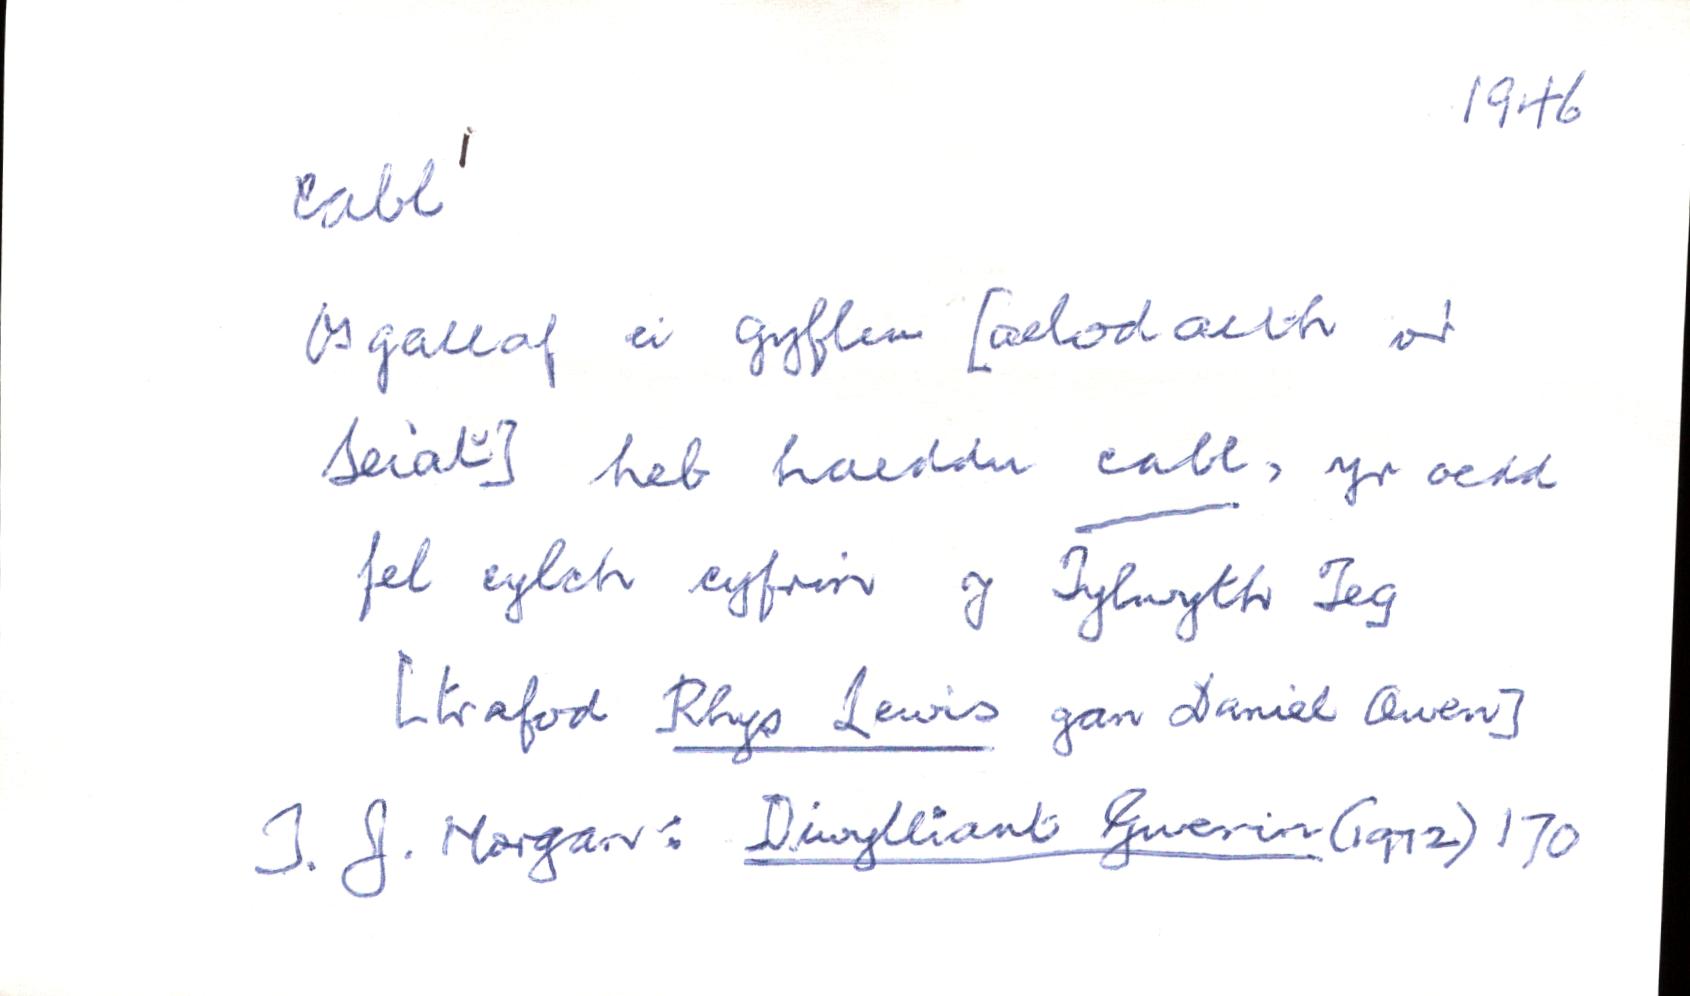 1946
cabl¹
Os gallaf ei gyfleu [aelodaeth o'r
Seiat] heb haeddu cabl, yr oedd
fel cylch cyfrin y Tylwyth Teg
[trafod Rhys Lewis gan Daniel Owen]
T. J. Morgan: Diwylliant Gwerin (1972) 170